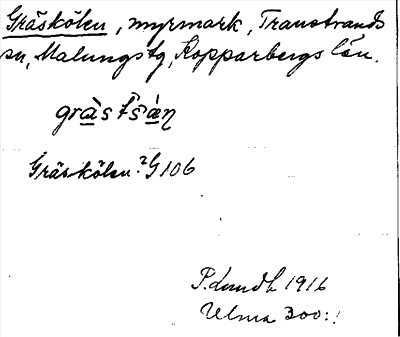 Gräskölen, myrmark, Transtrands
sn, Malungs tg, Kopparbergs län.
Gräskölen. ²G 106
P. Lundh 1916
Ulma 300:1